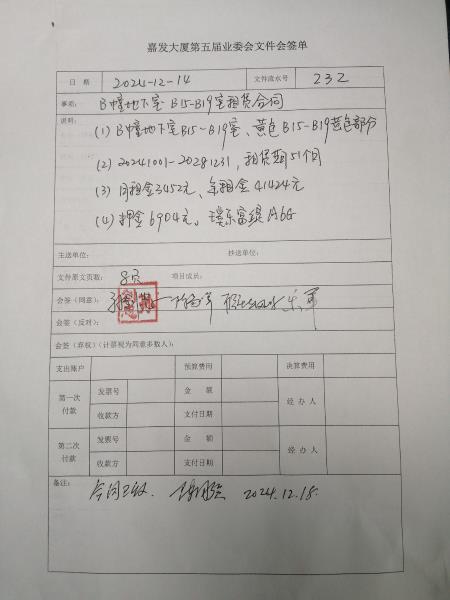 嘉发大厦第五届业委会文件会签单
日 期 2024-12-14 文件流水号 232
事项: B幢地下室 B15-B19室租赁合同
说明:
(1) B幢地下室B15-B19室、黄色B15-B19黄色部分
(2) 20241001-20281231, 租赁期51个月
(3) 月租金3452元, 年租金41424元
(4) 押金6904元。 A6G
主送单位: 抄送单位:
文件原文页数: 8页 项目成员:
会签(同意):
会签(反对):
会签(弃权)(计票视为同意多数人):
支出账户 预算费用 决算费用
第一次付款 发票号 金 额 经 办 人
收款方 支付日期
第二次付款 发票号 金 额 经 办 人
收款方 支付日期
备注:
合同已收. 2024.12.18.